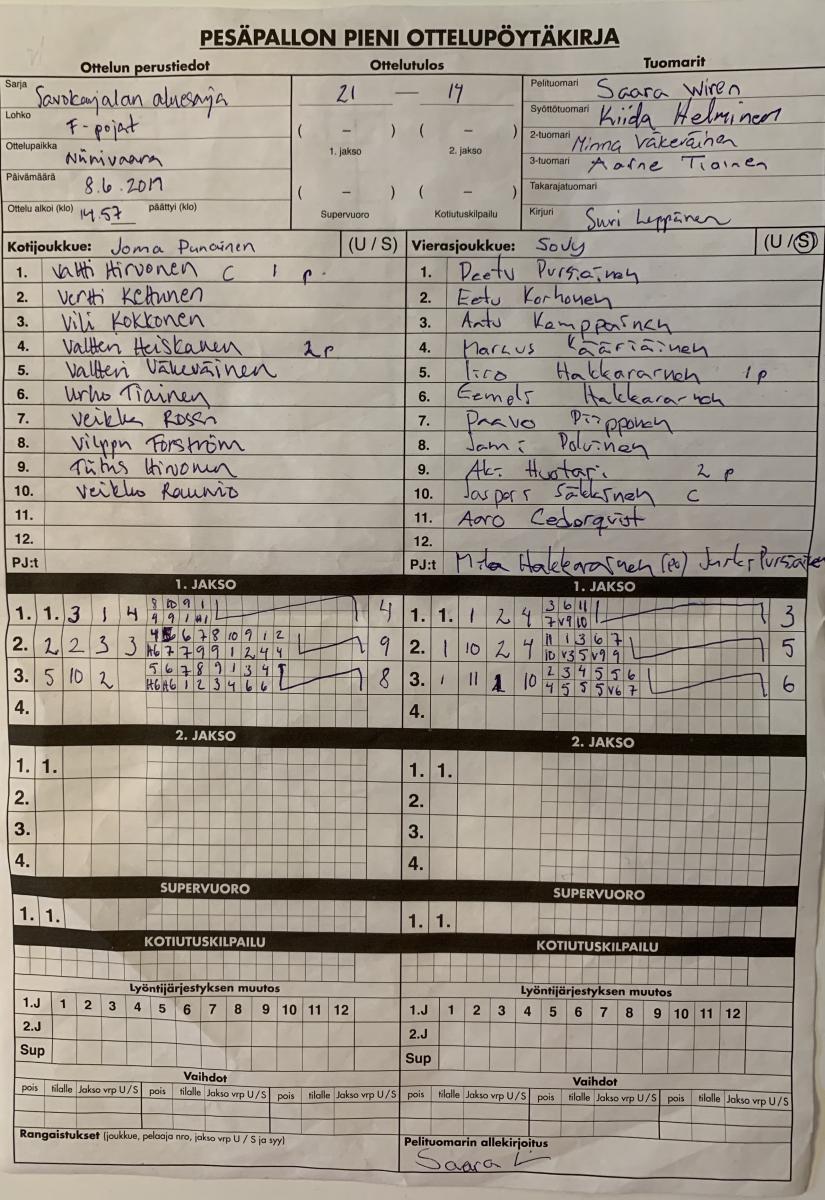 PESÄPALLON PIENI OTTELUPÖYTÄKIRJA
Ottelun perustiedot
Sarja Savokarjalan aluesarja
Lohko F-pojat
Ottelupaikka Niinivaara
Päivämäärä 8.6.2019
Ottelu alkoi (klo) 14.57 päättyi (klo)
Ottelutulos
21 — 14
( – ) ( – )
1. jakso 2. jakso
( – ) ( – )
Supervuoro Kotiutuskilpailu
Tuomarit
Pelituomari Saara Wiren
Syöttötuomari Kiida Helminen
2-tuomari Minna Väkeväinen
3-tuomari Aarne Tiainen
Takarajatuomari
Kirjuri Suvi Leppänen
Kotijoukkue: Joma Punainen (U / S)
1. Valtti Hirvonen C 1 p.
2. Vertti Kettunen
3. Vili Kokkonen
4. Valtteri Heiskanen 2p
5. Valtteri Väkeväinen
6. Urho Tiainen
7. Veikka Rosen
8. Vilppu Forström
9. Tiitus Hirvonen
10. Veikko Raunio
11.
12.
PJ:t
Vierasjoukkue: SoJy (U / S)
1. Peetu Pursiainen
2. Eetu Korhonen
3. Antu Kemppainen
4. Markus Kääriäinen
5. Iiro Hakkarainen 1p
6. Eemeli Hakkarainen
7. Paavo Piipponen
8. Jami Polvinen
9. Aki Huotari 2 p
10. Jaspari Säkkinen C
11. Aaro Cedorqvist
12.
PJ:t Mika Hakkarainen
1. JAKSO
1. 1. 3 1 4 8 10 9 1 4
9 9 1
2. 2 2 3 3 4 6 7 8 10 9 1 2 9
H6 7 7 9 9 1 2 4 4
3. 5 10 2 5 6 7 8 9 1 3 4 8
H6 H6 1 2 3 4 6 6
4.
1. JAKSO
1. 1. 1 2 4 3 6 11 3
7 V9 10
2. 1 10 2 4 11 1 3 6 7 5
10 V3 5 V9 9
3. 1 11 1 10 2 3 4 5 5 6 6
4 5 5 5 V6 7
4.
2. JAKSO
1. 1.
2.
3.
4.
2. JAKSO
1. 1.
2.
3.
4.
SUPERVUORO
1. 1.
SUPERVUORO
1. 1.
KOTIUTUSKILPAILU
KOTIUTUSKILPAILU
Lyöntijärjestyksen muutos
1.J 1 2 3 4 5 6 7 8 9 10 11 12
2.J
Sup
Lyöntijärjestyksen muutos
1.J 1 2 3 4 5 6 7 8 9 10 11 12
2.J
Sup
Vaihdot
pois tilalle Jakso vrp U / S pois tilalle Jakso vrp U / S pois tilalle Jakso vrp U / S
Vaihdot
pois tilalle Jakso vrp U / S pois tilalle Jakso vrp U / S pois tilalle Jakso vrp U / S
Rangaistukset (joukkue, pelaaja nro, jakso vrp U / S ja syy)
Pelituomarin allekirjoitus
Saara